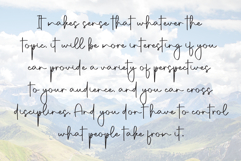 It makes sense that whatever the
topic, it will be more interesting if you
can provide a variety of perspectives
to your audience, and you can cross
disciplines. And you don't have to control
what people take from it.